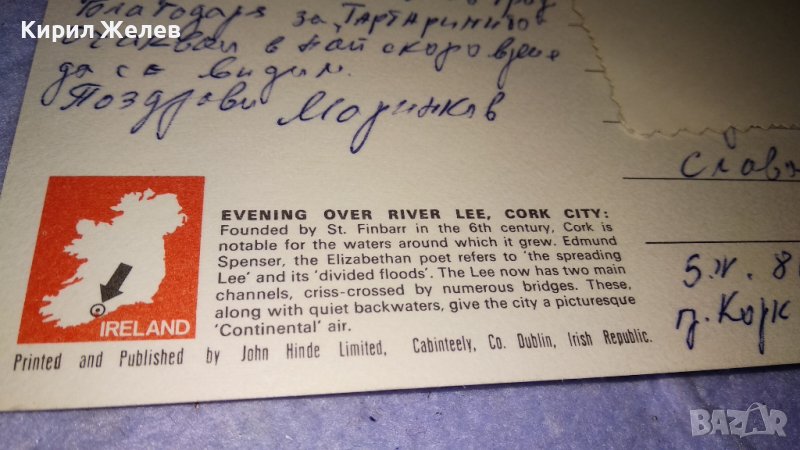 Кирил Желев
Благодаря за
очаквам в най скоро време
да се видим.
Поздрави Маринков
Слав
EVENING OVER RIVER LEE, CORK CITY:
Founded by St. Finbarr in the 6th century, Cork is
notable for the waters around which it grew. Edmund
Spenser, the Elizabethan poet refers to 'the spreading
Lee' and its 'divided floods'. The Lee now has two main
channels, criss-crossed by numerous bridges. These,
along with quiet backwaters, give the city a picturesque
'Continental' air.
IRELAND
Printed and Published by John Hinde Limited, Cabinteely, Co. Dublin, Irish Republic.
гр. Корк
BAZAR